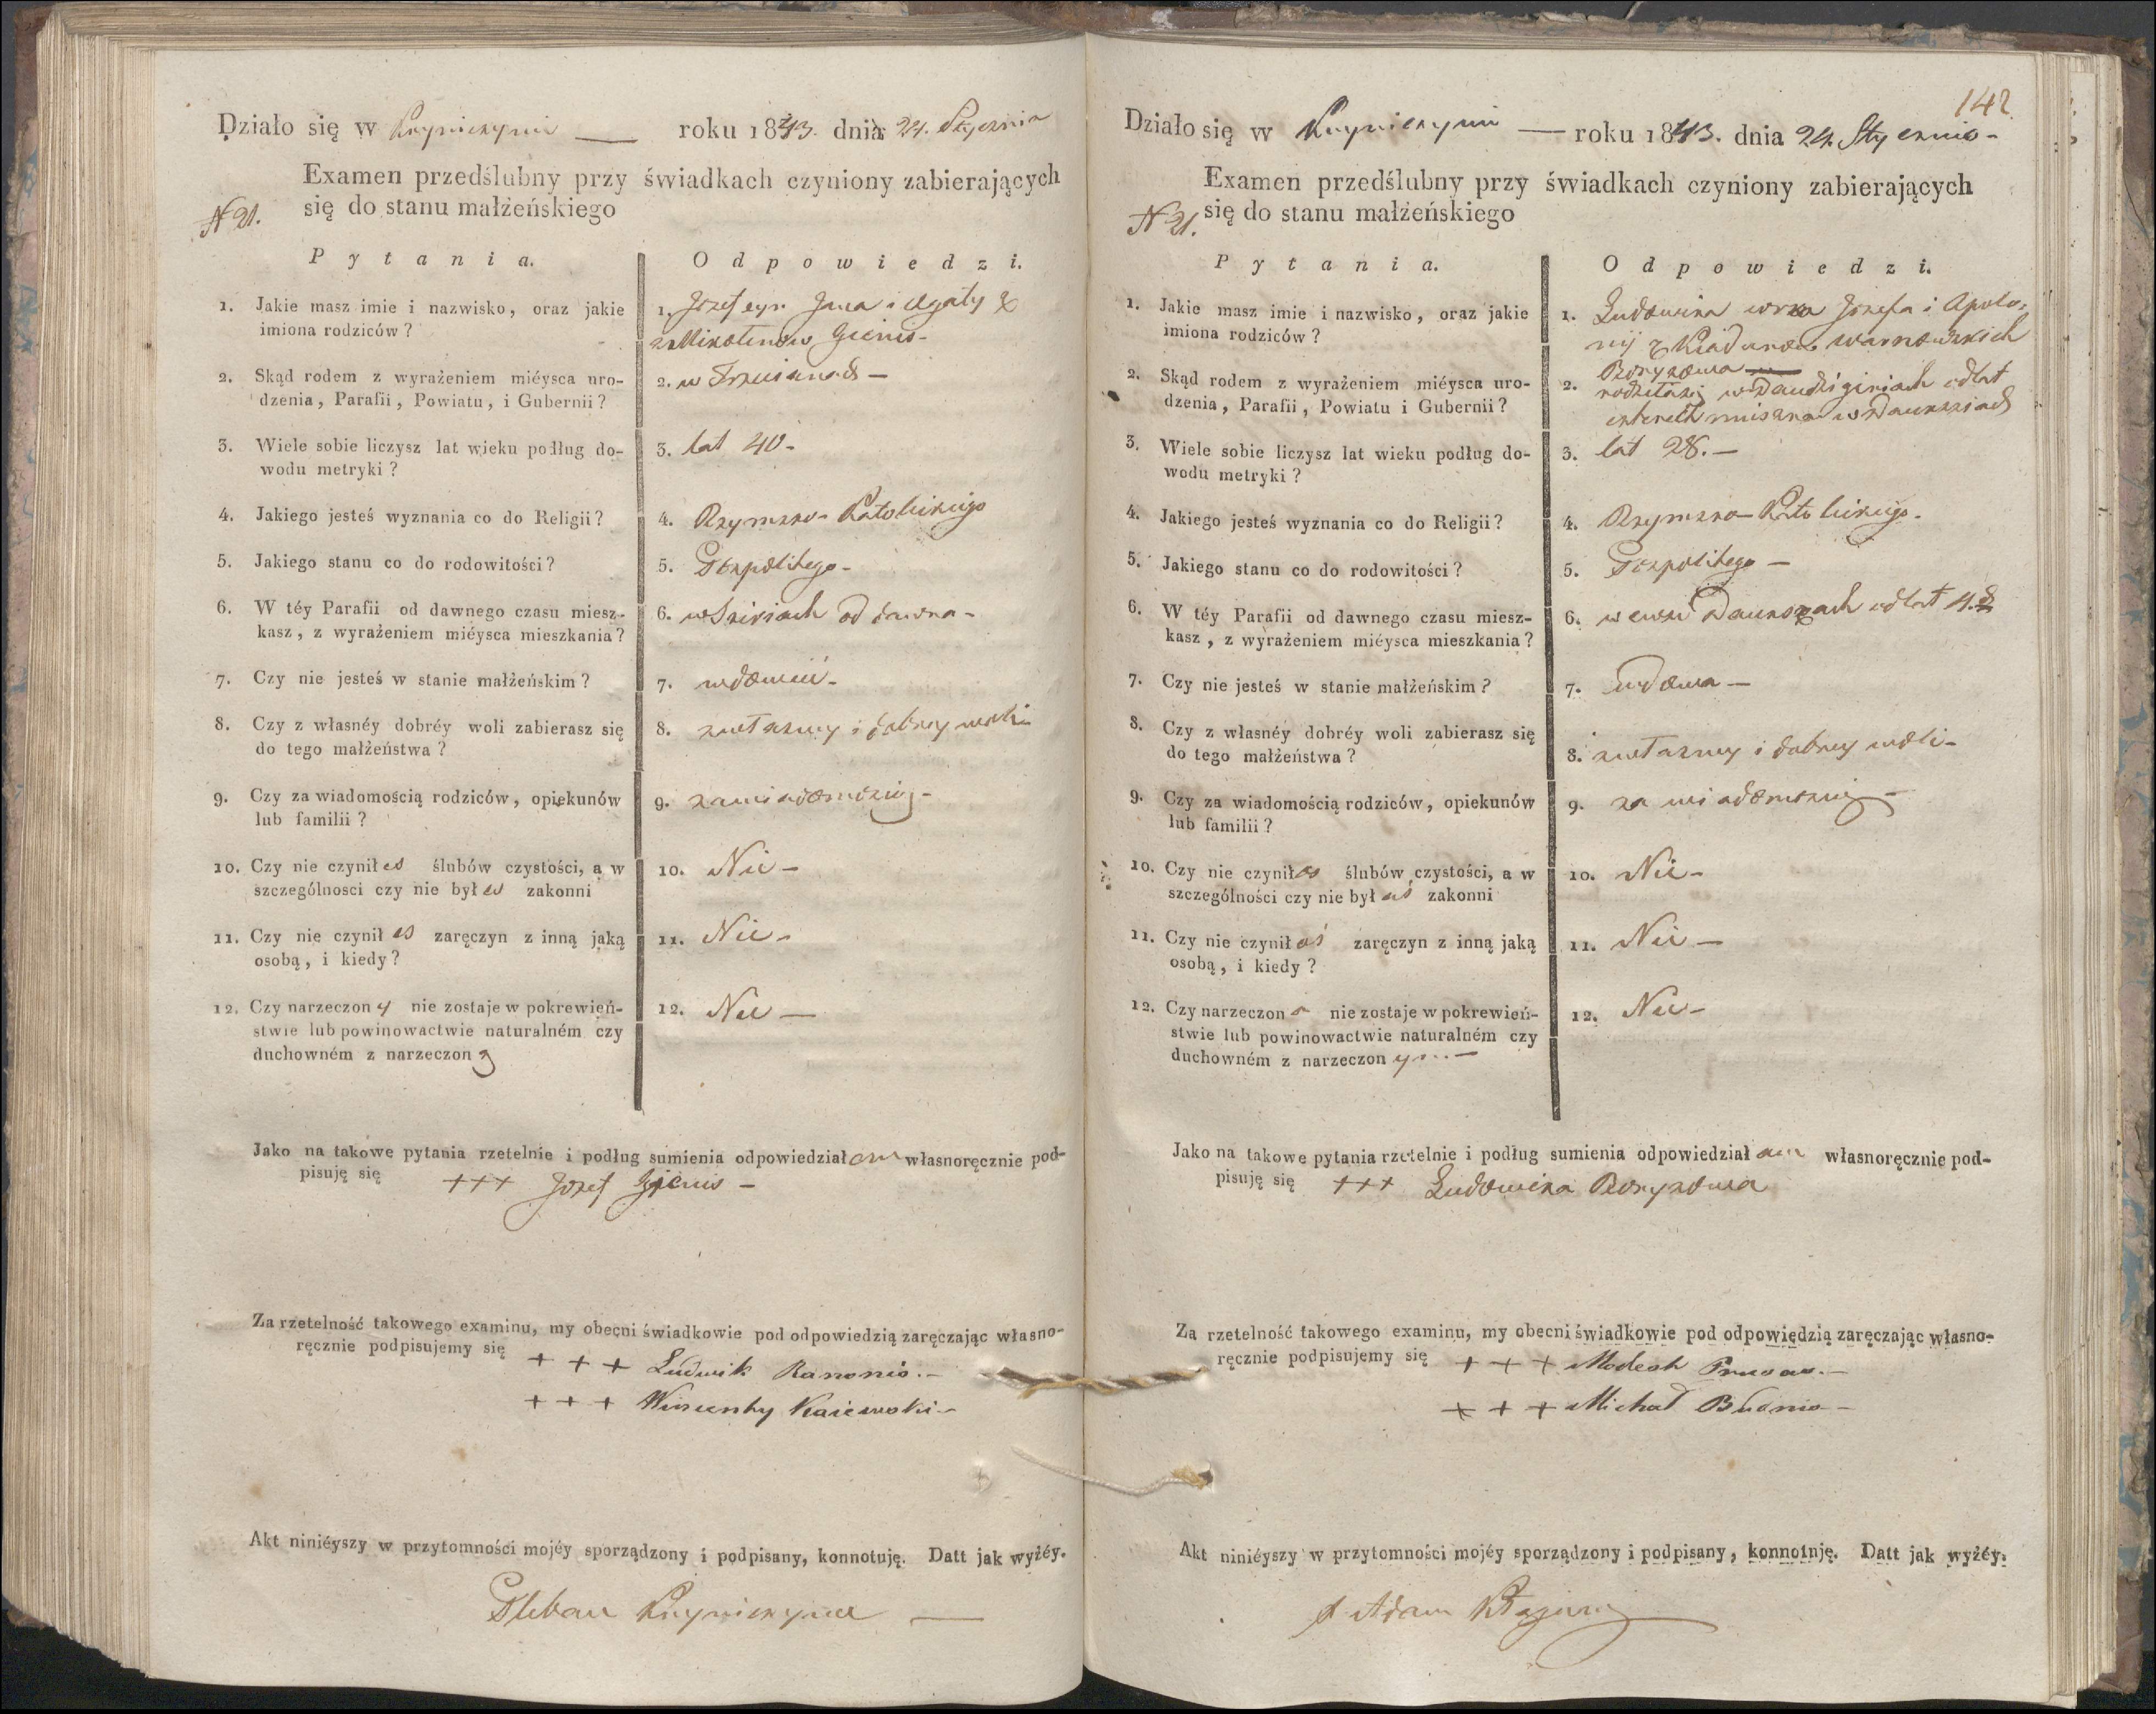 Działo się w Krynickynie — roku 1843. dnia 24. Stycznia
Examen przedślubny przy świadkach czyniony zabierających
się do stanu małżeńskiego
N 21.
Pytania. Odpowiedzi.
1. Jakie masz imie i nazwisko, oraz jakie
imiona rodziców?
1. Jozef syn Jana i Agaty z
Gienis-
2. Skąd rodem z wyrażeniem miéysca uro-
dzenia, Parafii, Powiatu, i Gubernii?
2. w
3. Wiele sobie liczysz lat wieku podług do-
wodu metryki?
3. lat 40-
4. Jakiego jesteś wyznania co do Religii?
4. Rzymsko-Katolickiego
5. Jakiego stanu co do rodowitości?
5. Pospolitego-
6. W téy Parafii od dawnego czasu miesz-
kasz, z wyrażeniem miéysca mieszkania?
6. od dawna-
7. Czy nie jesteś w stanie małżeńskim?
7. wdowiec-
8. Czy z własnéy dobréy woli zabierasz się
do tego małżeństwa?
8. z własney i dobrey woli-
9. Czy za wiadomością rodziców, opiekunów
lub familii?
9. za wiadomością-
10. Czy nie czynił es ślubów czystości, a w
szczególnosci czy nie był es zakonni
10. Nie-
11. Czy nie czynił es zaręczyn z inną jaką
osobą, i kiedy?
11. Nie-
12. Czy narzeczon y nie zostaje w pokrewień-
stwie lub powinowactwie naturalném czy
duchowném z narzeczon ą
12. Nie —
Jako na takowe pytania rzetelnie i podług sumienia odpowiedział em własnoręcznie pod-
pisuję się +++ Jozef Gienis -
Za rzetelność takowego examinu, my obecni świadkowie pod odpowiedzią zaręczając własno-
ręcznie podpisujemy się + + + Ludwik Kanonis.-
+ + + Wincenty
Akt niniéyszy w przytomności mojéy sporządzony i podpisany, konnotuję. Datt jak wyżéy.
Pleban —
142
Działo się w — roku 1843. dnia 24. Stycznia-
Examen przedślubny przy świadkach czyniony zabierających
się do stanu małżeńskiego
N 21.
Pytania. Odpowiedzi.
1. Jakie masz imie i nazwisko, oraz jakie
imiona rodziców?
1. Ludowika Jozefa i Apolo-
nij z
2. Skąd rodem z wyrażeniem miéysca uro-
dzenia, Parafii, Powiatu i Gubernii?
2. od lat
3. Wiele sobie liczysz lat wieku podług do-
wodu metryki?
3. lat 28.-
4. Jakiego jesteś wyznania co do Religii?
4. Rzymsko-Katolickiego.
5. Jakiego stanu co do rodowitości?
5. Pospolitego —
6. W téy Parafii od dawnego czasu miesz-
kasz, z wyrażeniem miéysca mieszkania?
6. od lat 4.
7. Czy nie jesteś w stanie małżeńskim?
7. wdowa —
8. Czy z własnéy dobréy woli zabierasz się
do tego małżeństwa?
8. z własney i dobrey woli-
9. Czy za wiadomością rodziców, opiekunów
lub familii?
9. za wiadomością-
10. Czy nie czynił aś ślubów czystości, a w
szczególności czy nie był aś zakonni
10. Nie-
11. Czy nie czynił aś zaręczyn z inną jaką
osobą, i kiedy?
11. Nie —
12. Czy narzeczon a nie zostaje w pokrewień-
stwie lub powinowactwie naturalném czy
duchowném z narzeczon ym —
12. Nie-
Jako na takowe pytania rzetelnie i podług sumienia odpowiedział am własnoręcznie pod-
pisuję się +++ Ludowika
Za rzetelność takowego examinu, my obecni świadkowie pod odpowiędzią zaręczając własno-
ręcznie podpisujemy się + + + Modest
+ + + Michał
Akt niniéyszy w przytomności mojéy sporządzony i podpisany, konnotuję. Datt jak wyżéy.
X Adam